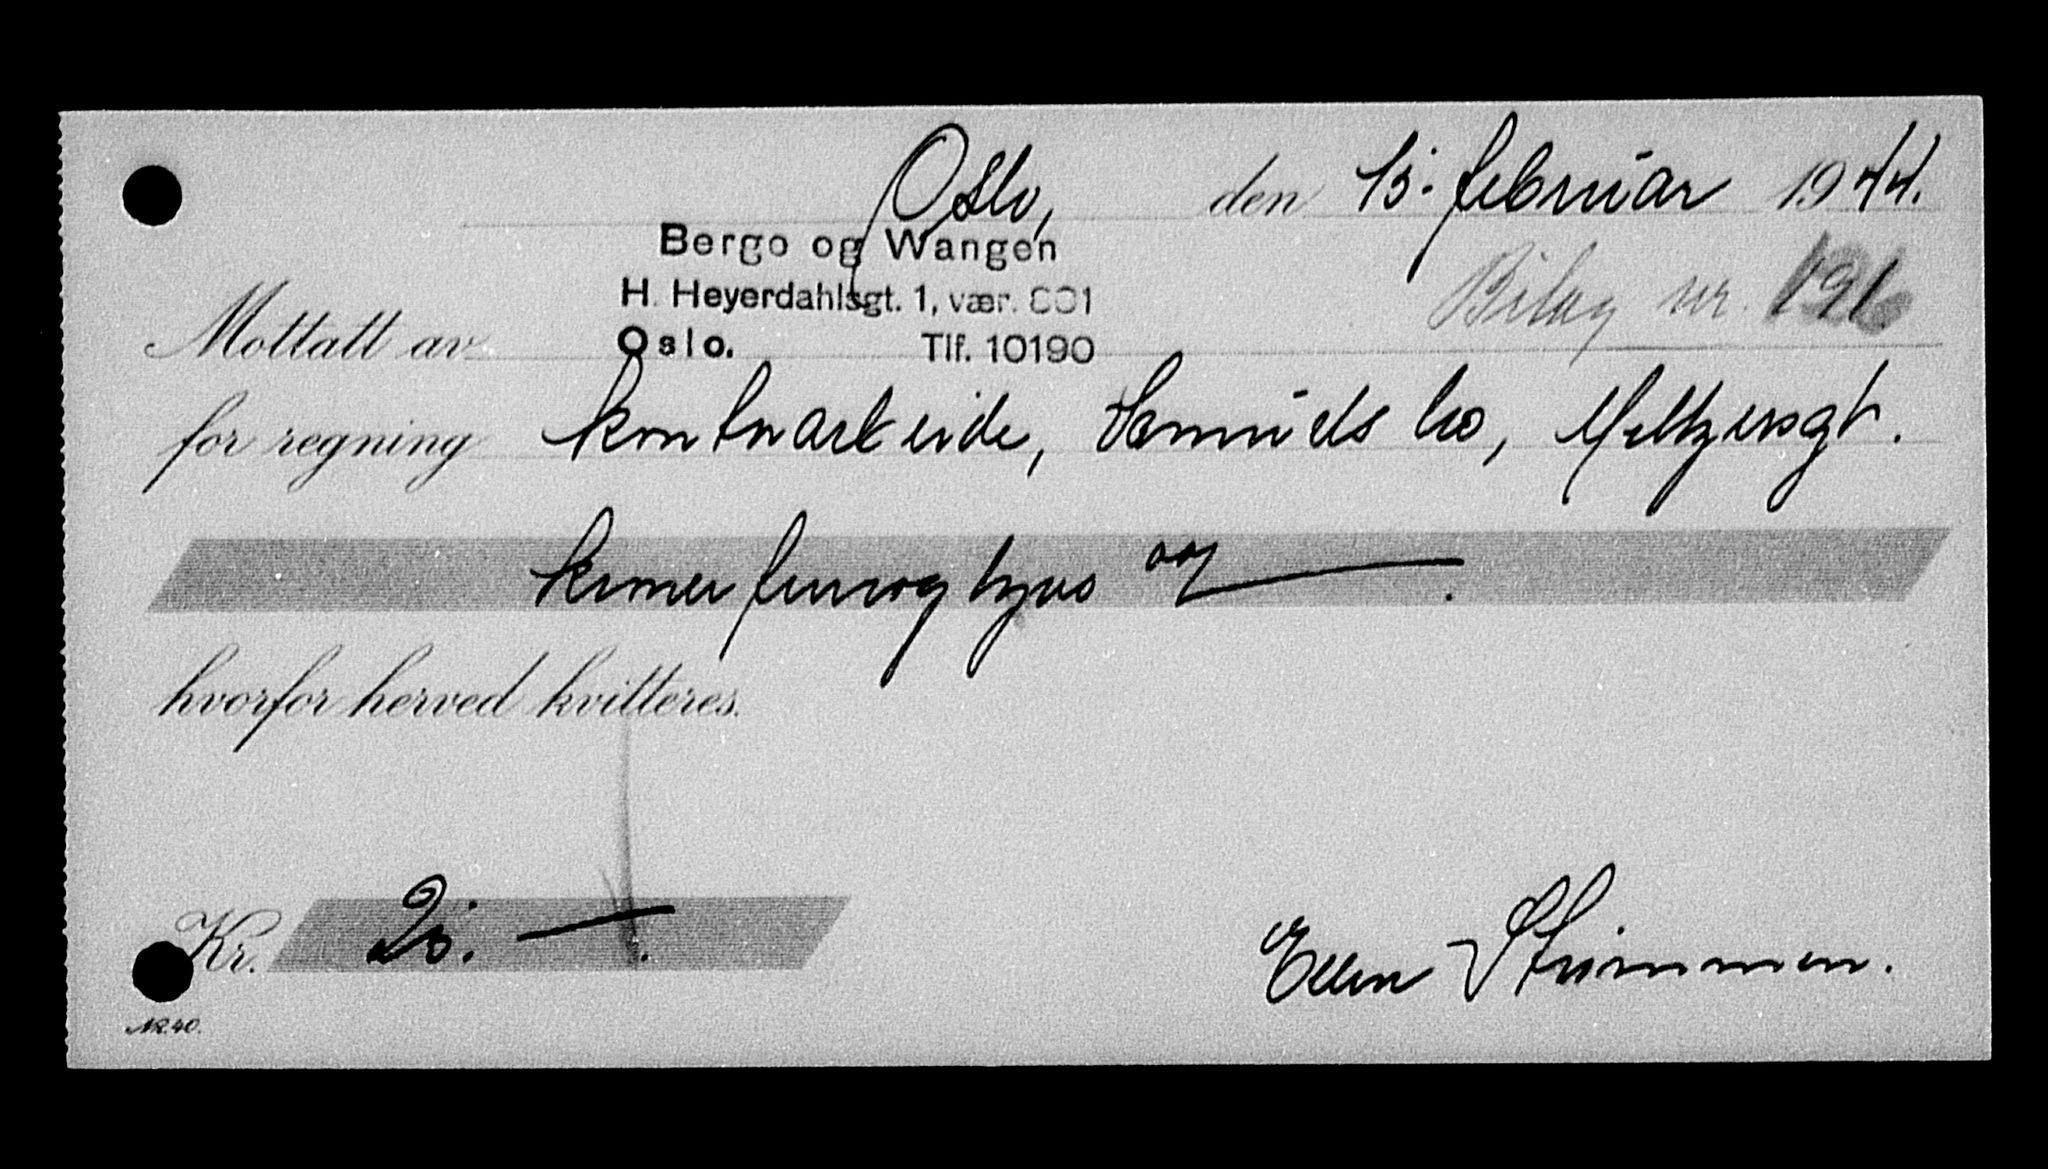 Oslo, den 15. februar 1944.
Bergo og Wangen
H. Heyerdahlsgt. 1, vær. 801
Bilag nr. 191
Mottatt av Oslo. Tlf. 10190
for regning kontorarbeide, bo, Meltzersgt.
og
hvorfor herved kvitteres.
Kr. 20.—.
Ellen Strømmen.
NR. 40.